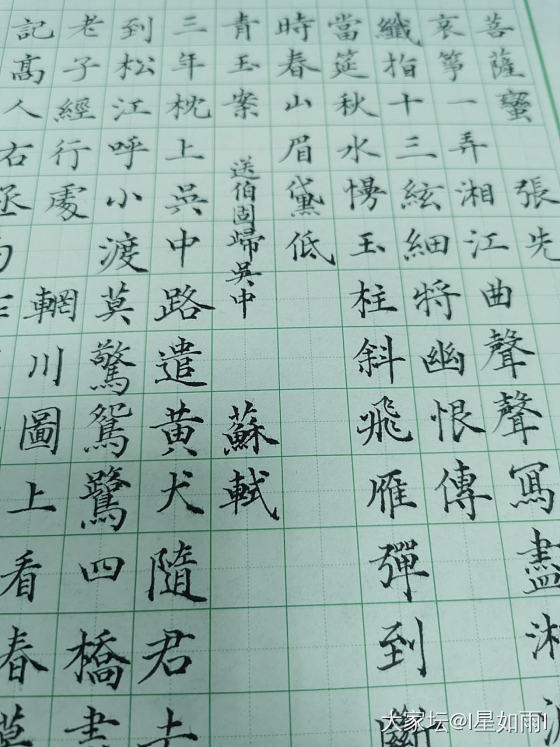 菩薩蠻 張先
哀箏一弄湘江曲聲聲寫盡湘波
纖指十三絃細將幽恨傳
當筵秋水慢玉柱斜飛雁彈到斷
時春山眉黛低
青玉案 送伯固歸吳中 蘇軾
三年枕上吳中路遣黃犬隨君去
到松江呼小渡莫驚鴛鷺四橋盡
老子經行處 輞川圖上看春
記高人右丞
大家坛@l星如雨l